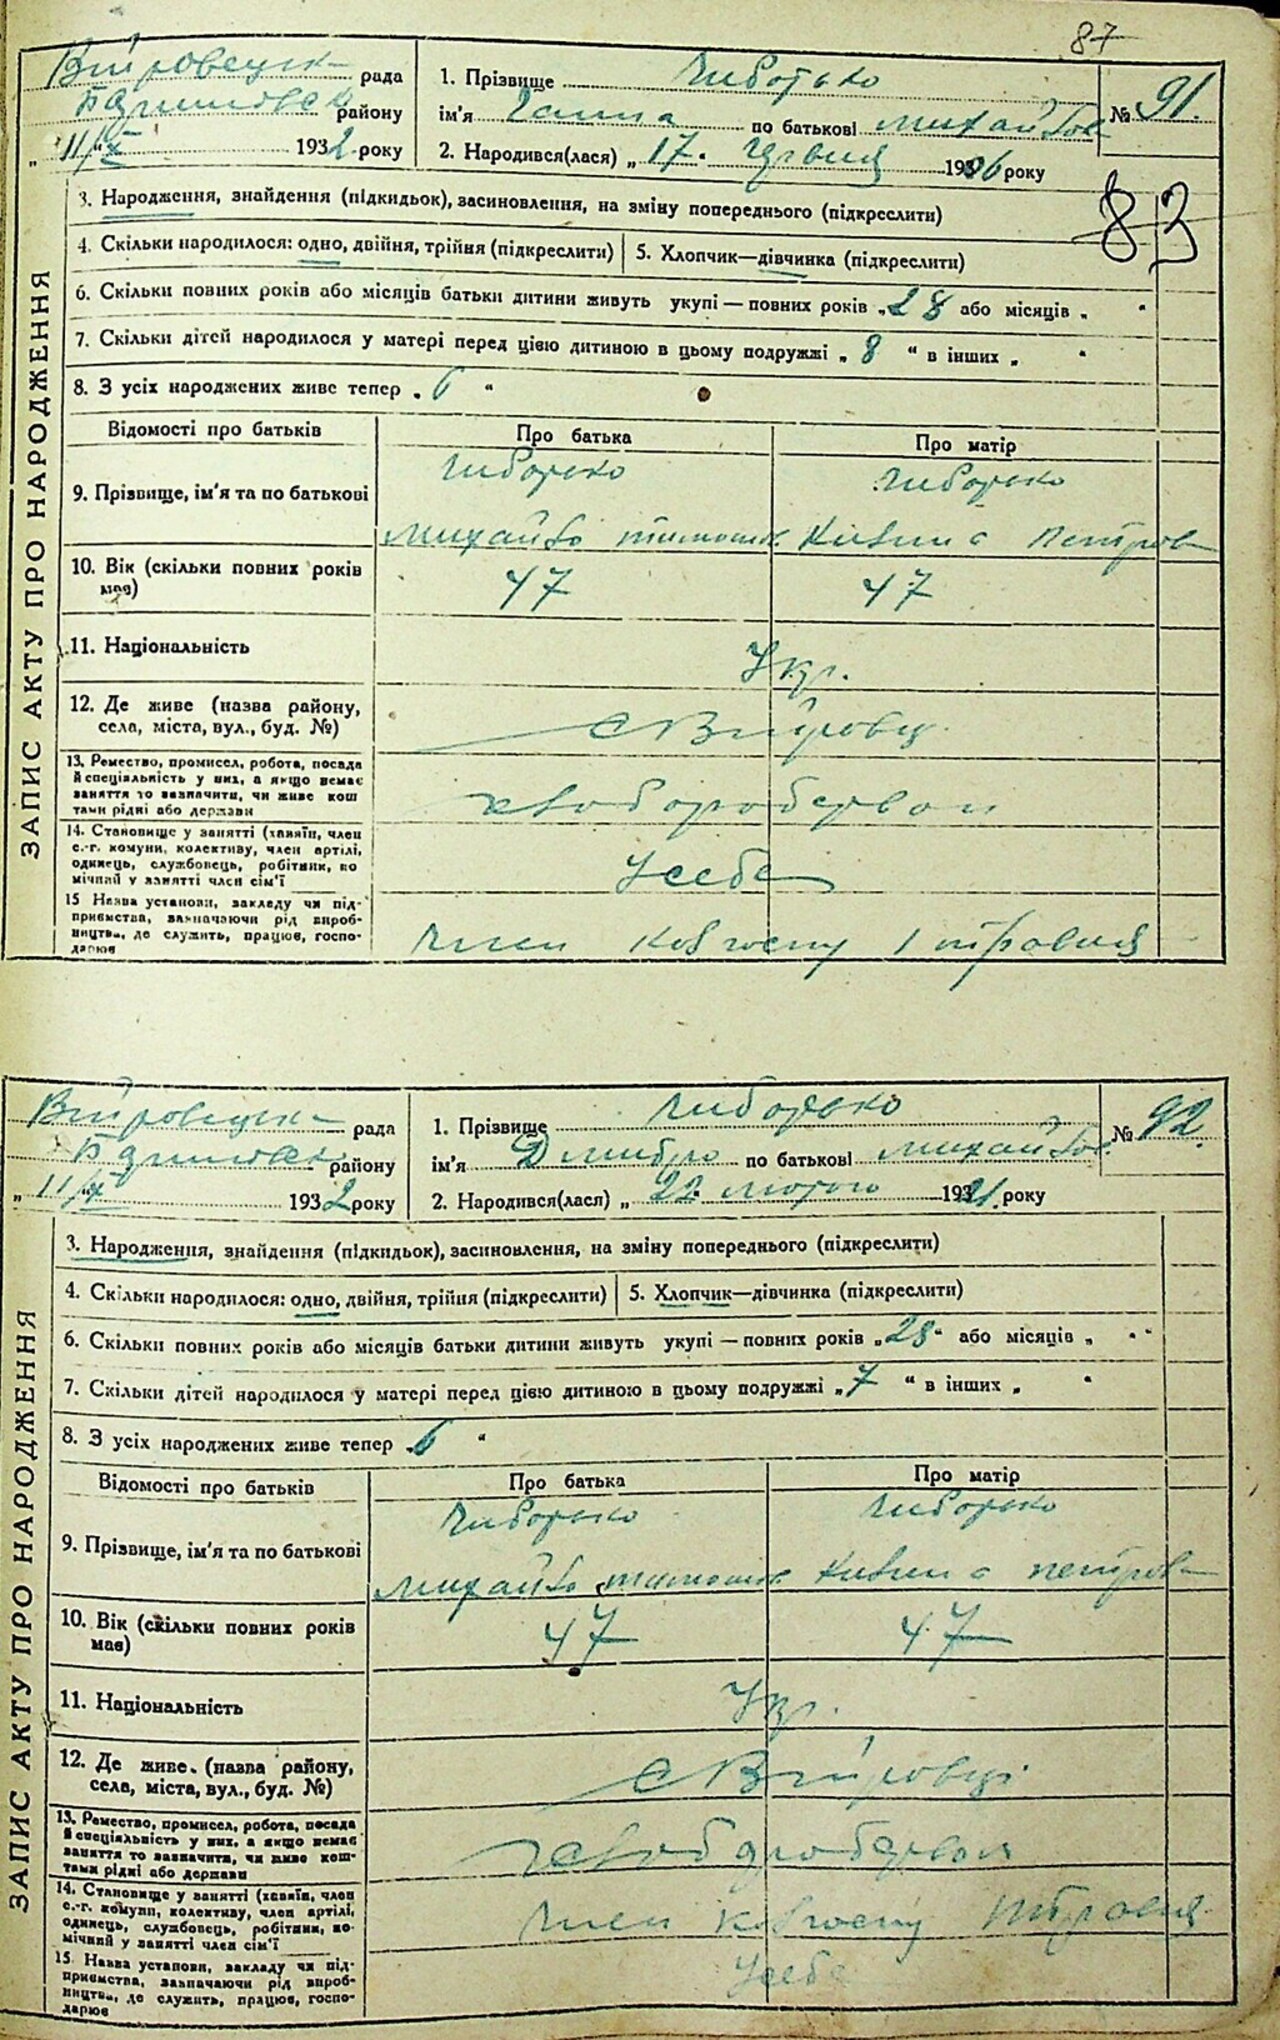 87
рада
району
11/X 1932 року
1. Прізвище
ім'я Ганна по батькові Михайлов
№ 91.
2. Народився(лася) „ 17. Червня 1906 року
83
3. Народження, знайдення (підкидьок), засиновлення, на зміну попереднього (підкреслити)
4. Скільки народилося: одно, двійня, трійня (підкреслити) 5. Хлопчик—дівчинка (підкреслити)
6. Скільки повних років або місяців батьки дитини живуть укупі — повних років „28 або місяців „ “
7. Скільки дітей народилося у матері перед цією дитиною в цьому подружжі „ 8 “ в інших „ “
8. З усіх народжених живе тепер „ 6 “
Відомості про батьків Про батька Про матір
9. Прізвище, ім'я та по батькові
Михайло Петров
10. Вік (скільки повних років має) 47 47
11. Національність Укр.
12. Де живе (назва району, села, міста, вул., буд. №)
13. Ремество, промисел, робота, посада й спеціяльність у них, а якщо немає заняття то зазначити, чи живе кош тами рідні або держави
хлібороберством
14. Становище у занятті (хазяїн, член с.-г. комуни, колективу, член артілі, одинець, службовець, робітник, по мічний у занятті член сім'ї
У себе
15 Назва установи, закладу чи під- приємства, зазначаючи рід вироб- ництва, де служить, працює, госпо- дарює
Член колгоспу 1 травня
ЗАПИС АКТУ ПРО НАРОДЖЕННЯ
рада
району
11/X 1932 року
1. Прізвище
ім'я Дмитро по батькові Михайлов.
№ 92.
2. Народився(лася) „ 22 лютого 1921. року
3. Народження, знайдення (підкидьок), засиновлення, на зміну попереднього (підкреслити)
4. Скільки народилося: одно, двійня, трійня (підкреслити) 5. Хлопчик—дівчинка (підкреслити)
6. Скільки повних років або місяців батьки дитини живуть укупі — повних років „28“ або місяців „ “
7. Скільки дітей народилося у матері перед цією дитиною в цьому подружжі „7 “ в інших „ “
8. З усіх народжених живе тепер „6 “
Відомості про батьків Про батька Про матір
9. Прізвище, ім'я та по батькові
Михайло Петров
10. Вік (скільки повних років має) 47 47
11. Національність Укр.
12. Де живе (назва району, села, міста, вул., буд. №)
13. Ремество, промисел, робота, посада й спеціяльність у них, а якщо немає заняття то зазначити, чи живе кош- тами рідні або держави
14. Становище у занятті (хазяїн, член с.-г. комуни, колективу, член артілі, одинець, службовець, робітник, по- мічний у занятті член сім'ї
Член колгоспу травня
15. Назва установи, закладу чи під- приємства, зазначаючи рід вироб- ництва, де служить, працює, госпо- дарює
У себе
ЗАПИС АКТУ ПРО НАРОДЖЕННЯ